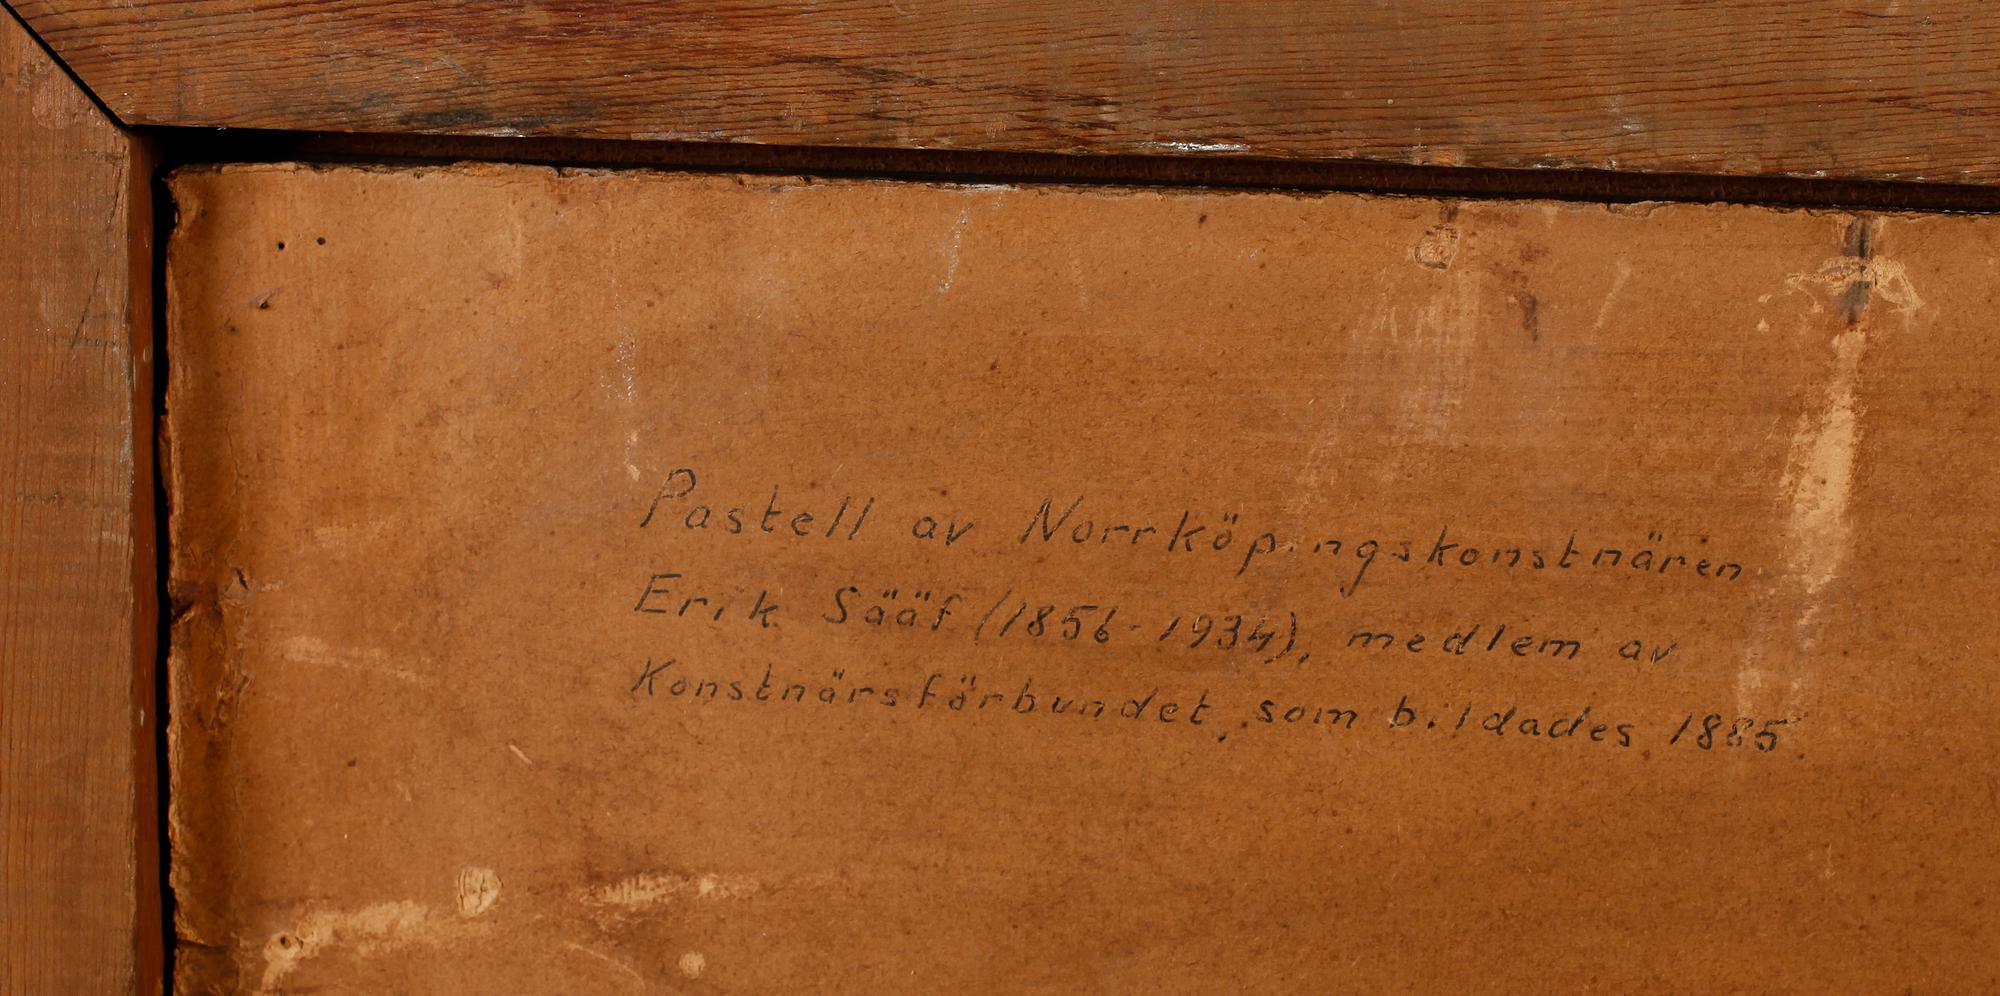 Pastell av Norrköpingskonstnären
Erik Sääf (1856-1934), medlem av
Konstnärsförbundet, som bildades 1885.